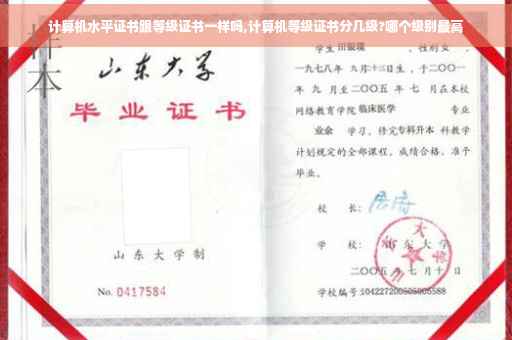 计算机水平证书跟等级证书一样吗,计算机等级证书分几级?哪个级别最高
样本
山东大学
毕业证书
山东大学制
No. 0417584
学生 田银瑞 ，性别女，
一九七八年 九月十三日生，于二〇〇一
年 九 月至二〇〇五 年 七 月在本校
网络教育学院临床医学 专业
业余 学习，修完专科升本 科教学
计划规定的全部课程，成绩合格，准予
毕业。
校 长：
学 校：山东大学
二〇〇五年七月十日
学校编号:104227200505005588